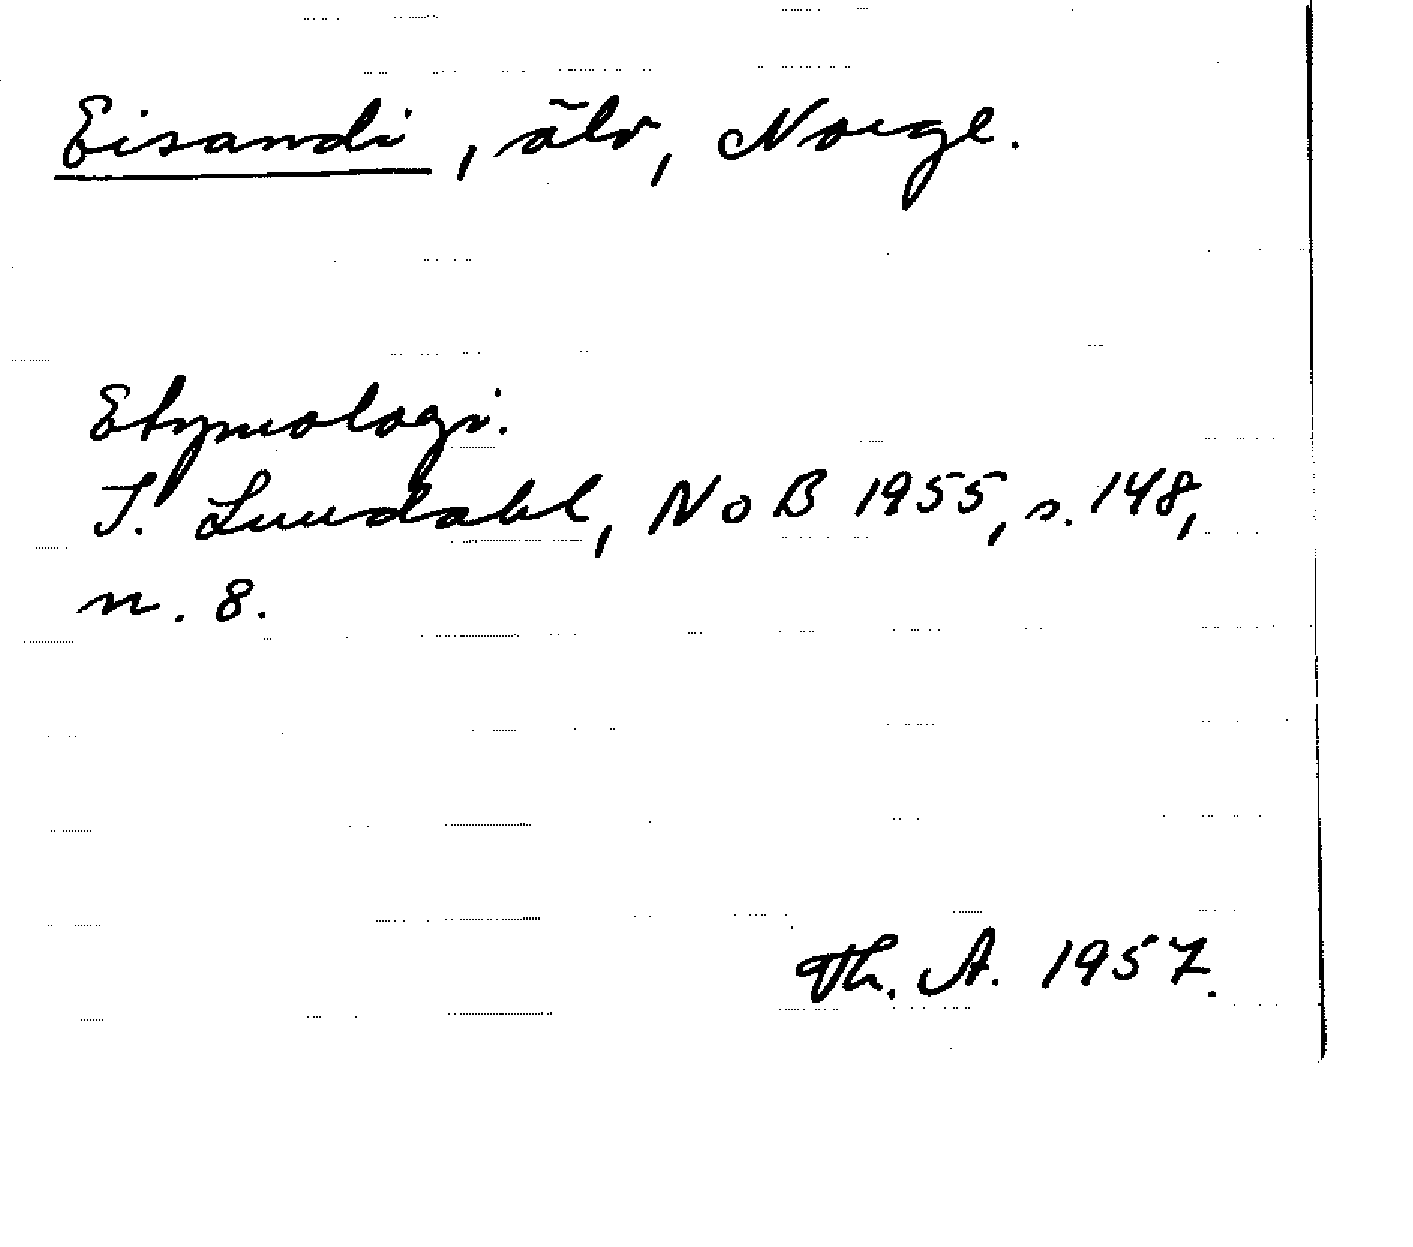 Eisandi, älv, Norge.
Etymologi.
I. Lundahl, NoB 1955, s. 148,
n. 8.
Th. A. 1957.